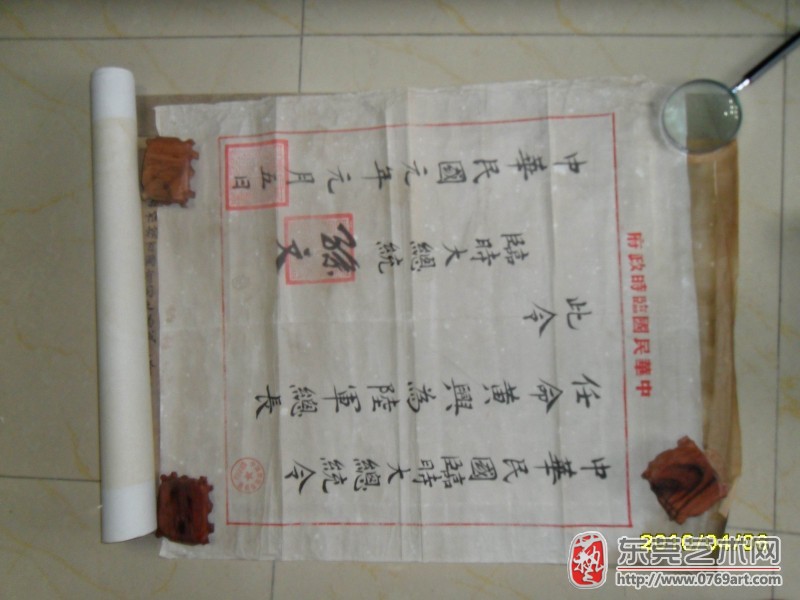 中華民國臨時政府
中華民國臨時大總統令
任命黄興為陸軍總長
此令
臨時大總統
孫文
中華民國元年元月五日
东莞艺术网
http://www.0769art.com